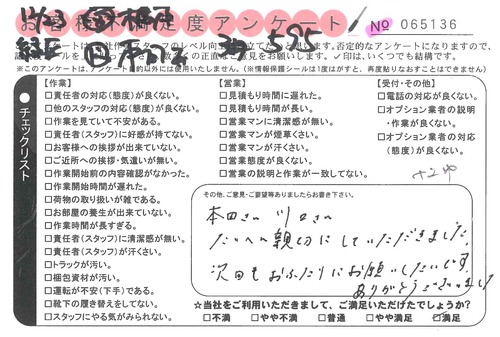 お客様満足度アンケート
No 065136
※このアンケートは、アンケート目的以外には使用いたしません。(※情報保護シールは1度はがすと、再度貼りなおすことはできません)
チェックリスト
【作業】
□責任者の対応(態度)が良くない。
□他のスタッフの対応(態度)が良くない。
□作業を見ていて不安がある。
□責任者(スタッフ)に好感が持てない。
□お客様への挨拶が出来ていない。
□ご近所への挨拶・気遣いが無い。
□作業開始前の内容確認がなかった。
□作業開始時間が遅れた。
□荷物の取り扱いが雑である。
□お部屋の養生が出来ていない。
□作業時間が長すぎる。
□責任者(スタッフ)に清潔感が無い。
□責任者(スタッフ)が汗くさい。
□トラックが汚い。
□梱包資材が汚い。
□運転が不安(下手)である。
□靴下の履き替えをしてない。
□スタッフにやる気がみられない。
【営業】
□見積もり時間に遅れた。
□見積もり時間が長い。
□営業マンに清潔感が無い。
□営業マンが煙草くさい。
□営業マンが汗くさい。
□営業態度が良くない。
□営業の説明と作業が一致してない。
【受付・その他】
□電話の対応が良くない。
□オプション業者の説明
・作業が良くない。
□オプション業者の対応
(態度)が良くない。
その他、ご意見・ご要望等ありましたらお書き下さい。
本田さん 川口さん
たいへん親切にしていただきました。
次回もおふたりにお願いしたいです。
ありがとうございました
☆当社をご利用いただきまして、ご満足いただけたでしょうか?
□不満 □やや不満 □普通 □やや満足 ☑満足